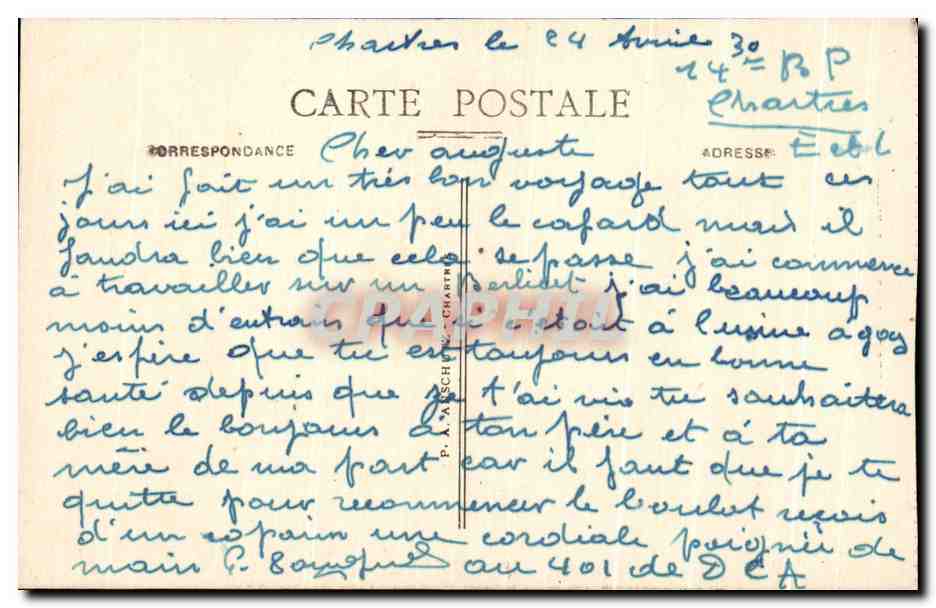 Chartres le 24 Avril 30
14 R P
CARTE POSTALE
Chartres
CORRESPONDANCE
Cher auguste
ADRESSE
E et L
J'ai fait un trés bon voyage tout ces
jours ici j'ai un peu le cafard mais il
faudra bien que cela se passe j'ai commence
à travailler sur un Berliet j'ai beaucoup
moins d'entrain que si c'etait à l'usine a
j'espère que tu est toujours en bonne
santé depuis que je t'ai vu tu souhaitera
bien le bonjours à ton père et à ta
mère de ma part car il faut que je te
quitte pour recommencer le boulot reçois
d'un copain une cordiale poignée de
main au 401 de D C A
P. A. CHARTRES
CRAPHIL